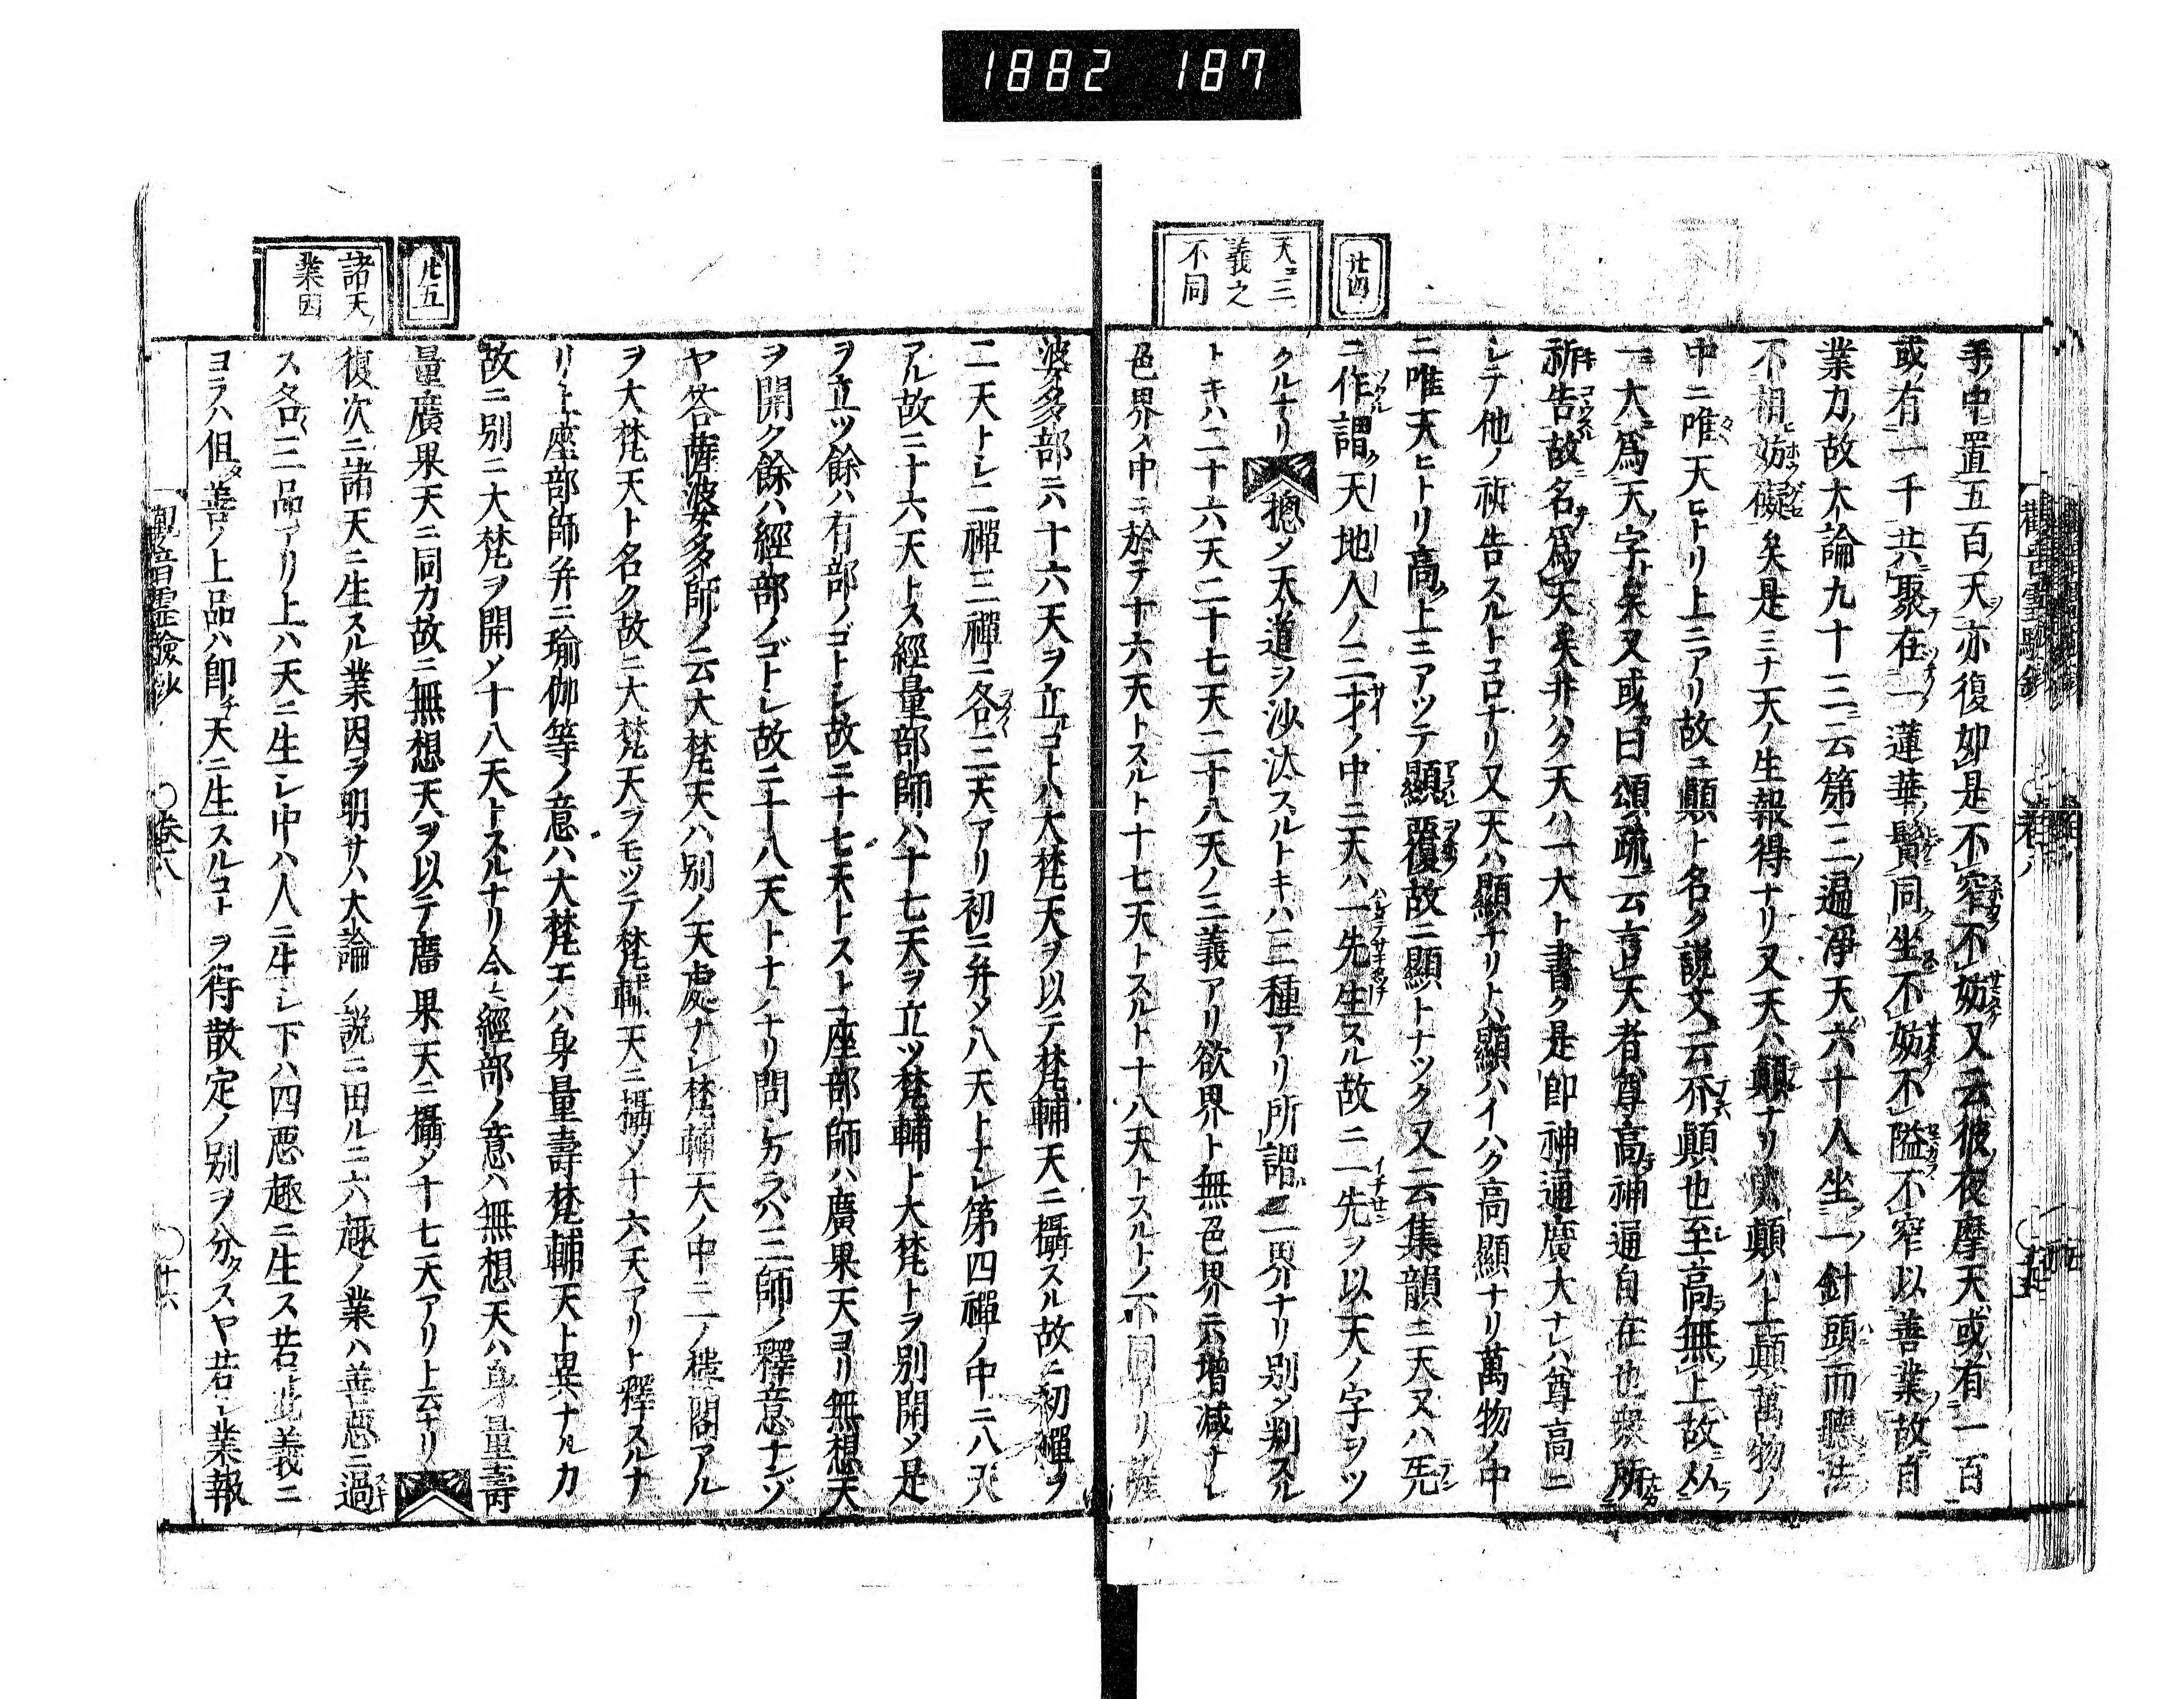 1882 187
廿四
天ニ三
義之
不同
手ノ中置五百ノ天ヲ亦復如是不窄不妨又云彼ノ夜摩天或ハ有一百
或ハ有一千共ニ聚テ在一ノ蓮華ノ鬚ニ同ク坐不妨不隘不窄以善業ノ故ニ自
業力ノ故大論九十三ニ云第三ノ遍淨天ハ六十人坐一ノ針頭ニ而聽法
不相妨礙矣是ミナ天ノ生報得ナリ又天ハ顛ナリ顛ハ上顛萬物ノ
中ニ唯天ヒトリ上ニアリ故ニ顛ト名ク説文ニ云顛也至高無上故从
一大爲天ノ字ト矣又或ハ曰頌疏ニ云言天者尊高神通自在也衆所
祈告故名爲天矣井ハク天ハ一大ト書ク是即神通廣大ナレハ尊高ニ
シテ他ノ祈告スルトコロナリ又天ハ顯ナリトハ顯ハイハク高顯ナリ萬物ノ中
ニ唯天ヒトリ高ク上ニアツテ顯覆故ニ顯トナツク又云集韻ニ天又ハ先
ニ作謂ク天地人ノ三才ノ中ニ天ハ一先生スル故ニ一先ヲ以天ノ字ヲツ
クルナリ摠メ天道ヲ沙汰スルトキハ三種アリ所謂三界ナリ別メ判スル
トキハ二十六天二十七天二十八天ノ三義アリ欲界ト無色界ニハ増減ナシ
色界ノ中ニ於テ十六天トスルト十七天トスルト十八天トスルトノ不同アリ薩
波多部ニハ十六天ヲ立ルコトハ大梵天ヲ以テ梵輔天ニ攝スル故ニ初禪ヲ
二天トシ二禪三禪ニ各三天アリ初ニ并メ八天トナシ第四禪ノ中ニ八天
アル故ニ十六天トス經量部師ハ十七天ヲ立ツ梵輔ト大梵トヲ別開メ是
ヲ立ツ餘ハ有部ノゴトシ故ニ十七天トス上座部師ハ廣果天ヨリ無想天
ヲ開ク餘ハ經部ノゴトシ故ニ十八天トナルナリ問シカラバ三師ノ釋意ナンゾ
ヤ答薩婆多師ノ云大梵天ハ別ノ天處ナシ梵輔天ノ中ニ一ノ樓閣アル
ヲ大梵天ト名ク故ニ大梵天ヲモツテ梵輔天ニ攝メ十六天アリト釋スルナ
リ上座部師并ニ瑜伽等ノ意ハ大梵王ハ身量壽梵輔天ト異ナルカ
故ニ別ニ大梵ヲ開メ十八天トスルナリ今ノ經部ノ意ハ無想天ハ身量壽
量廣果天ニ同カ故ニ無想天ヲ以テ廣果天ニ攝メ十七天アリト云ナリ
復次ニ諸天ニ生スル業因ヲ明サハ大論ノ説ニ田ルニ六趣ノ業ハ善惡ニ過
ス各三品アリ上ハ天ニ生シ中ハ人ニ生シ下ハ四惡趣ニ生ス若此義ニ
ヨラハ但善ノ上品ハ即チ天ニ生スルコトヲ得散定ノ別ヲ分タスヤ若シ業報
廿五
諸天ノ
業因
觀音霊驗鈔 ○卷八 ○十六